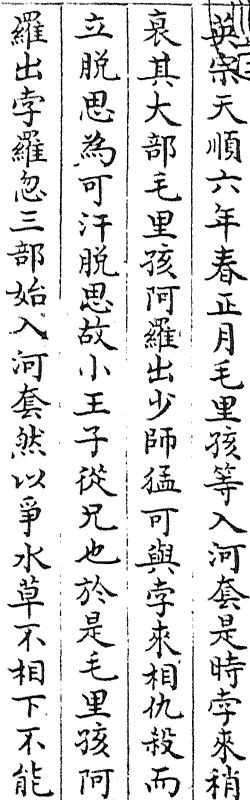 英宗天順六年春正月毛里孩等入河套是時孛來稍
衰其大部毛里孩阿羅出少師猛可與孛來相仇殺而
立脫思為可汗脫思故小王子從兄也於是毛里孩阿
羅出孛羅忽三部始入河套然以爭水草不相下不能